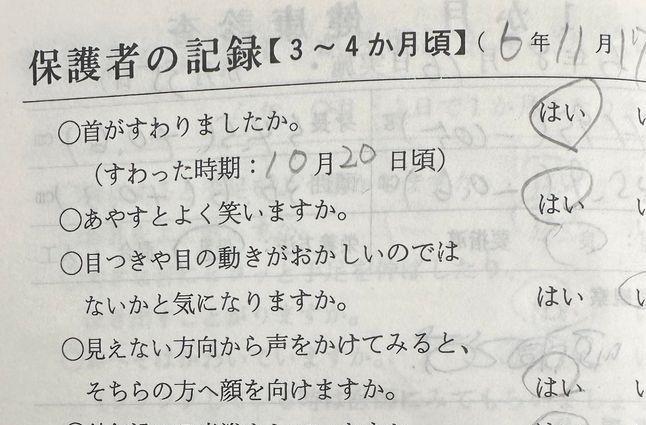 保護者の記録【3～4か月頃】( 6 年 11 月 17
○首がすわりましたか。 はい
(すわった時期：10月20日頃)
○あやすとよく笑いますか。 はい
○目つきや目の動きがおかしいのでは
ないかと気になりますか。 はい
○見えない方向から声をかけてみると、
そちらの方へ顔を向けますか。 はい